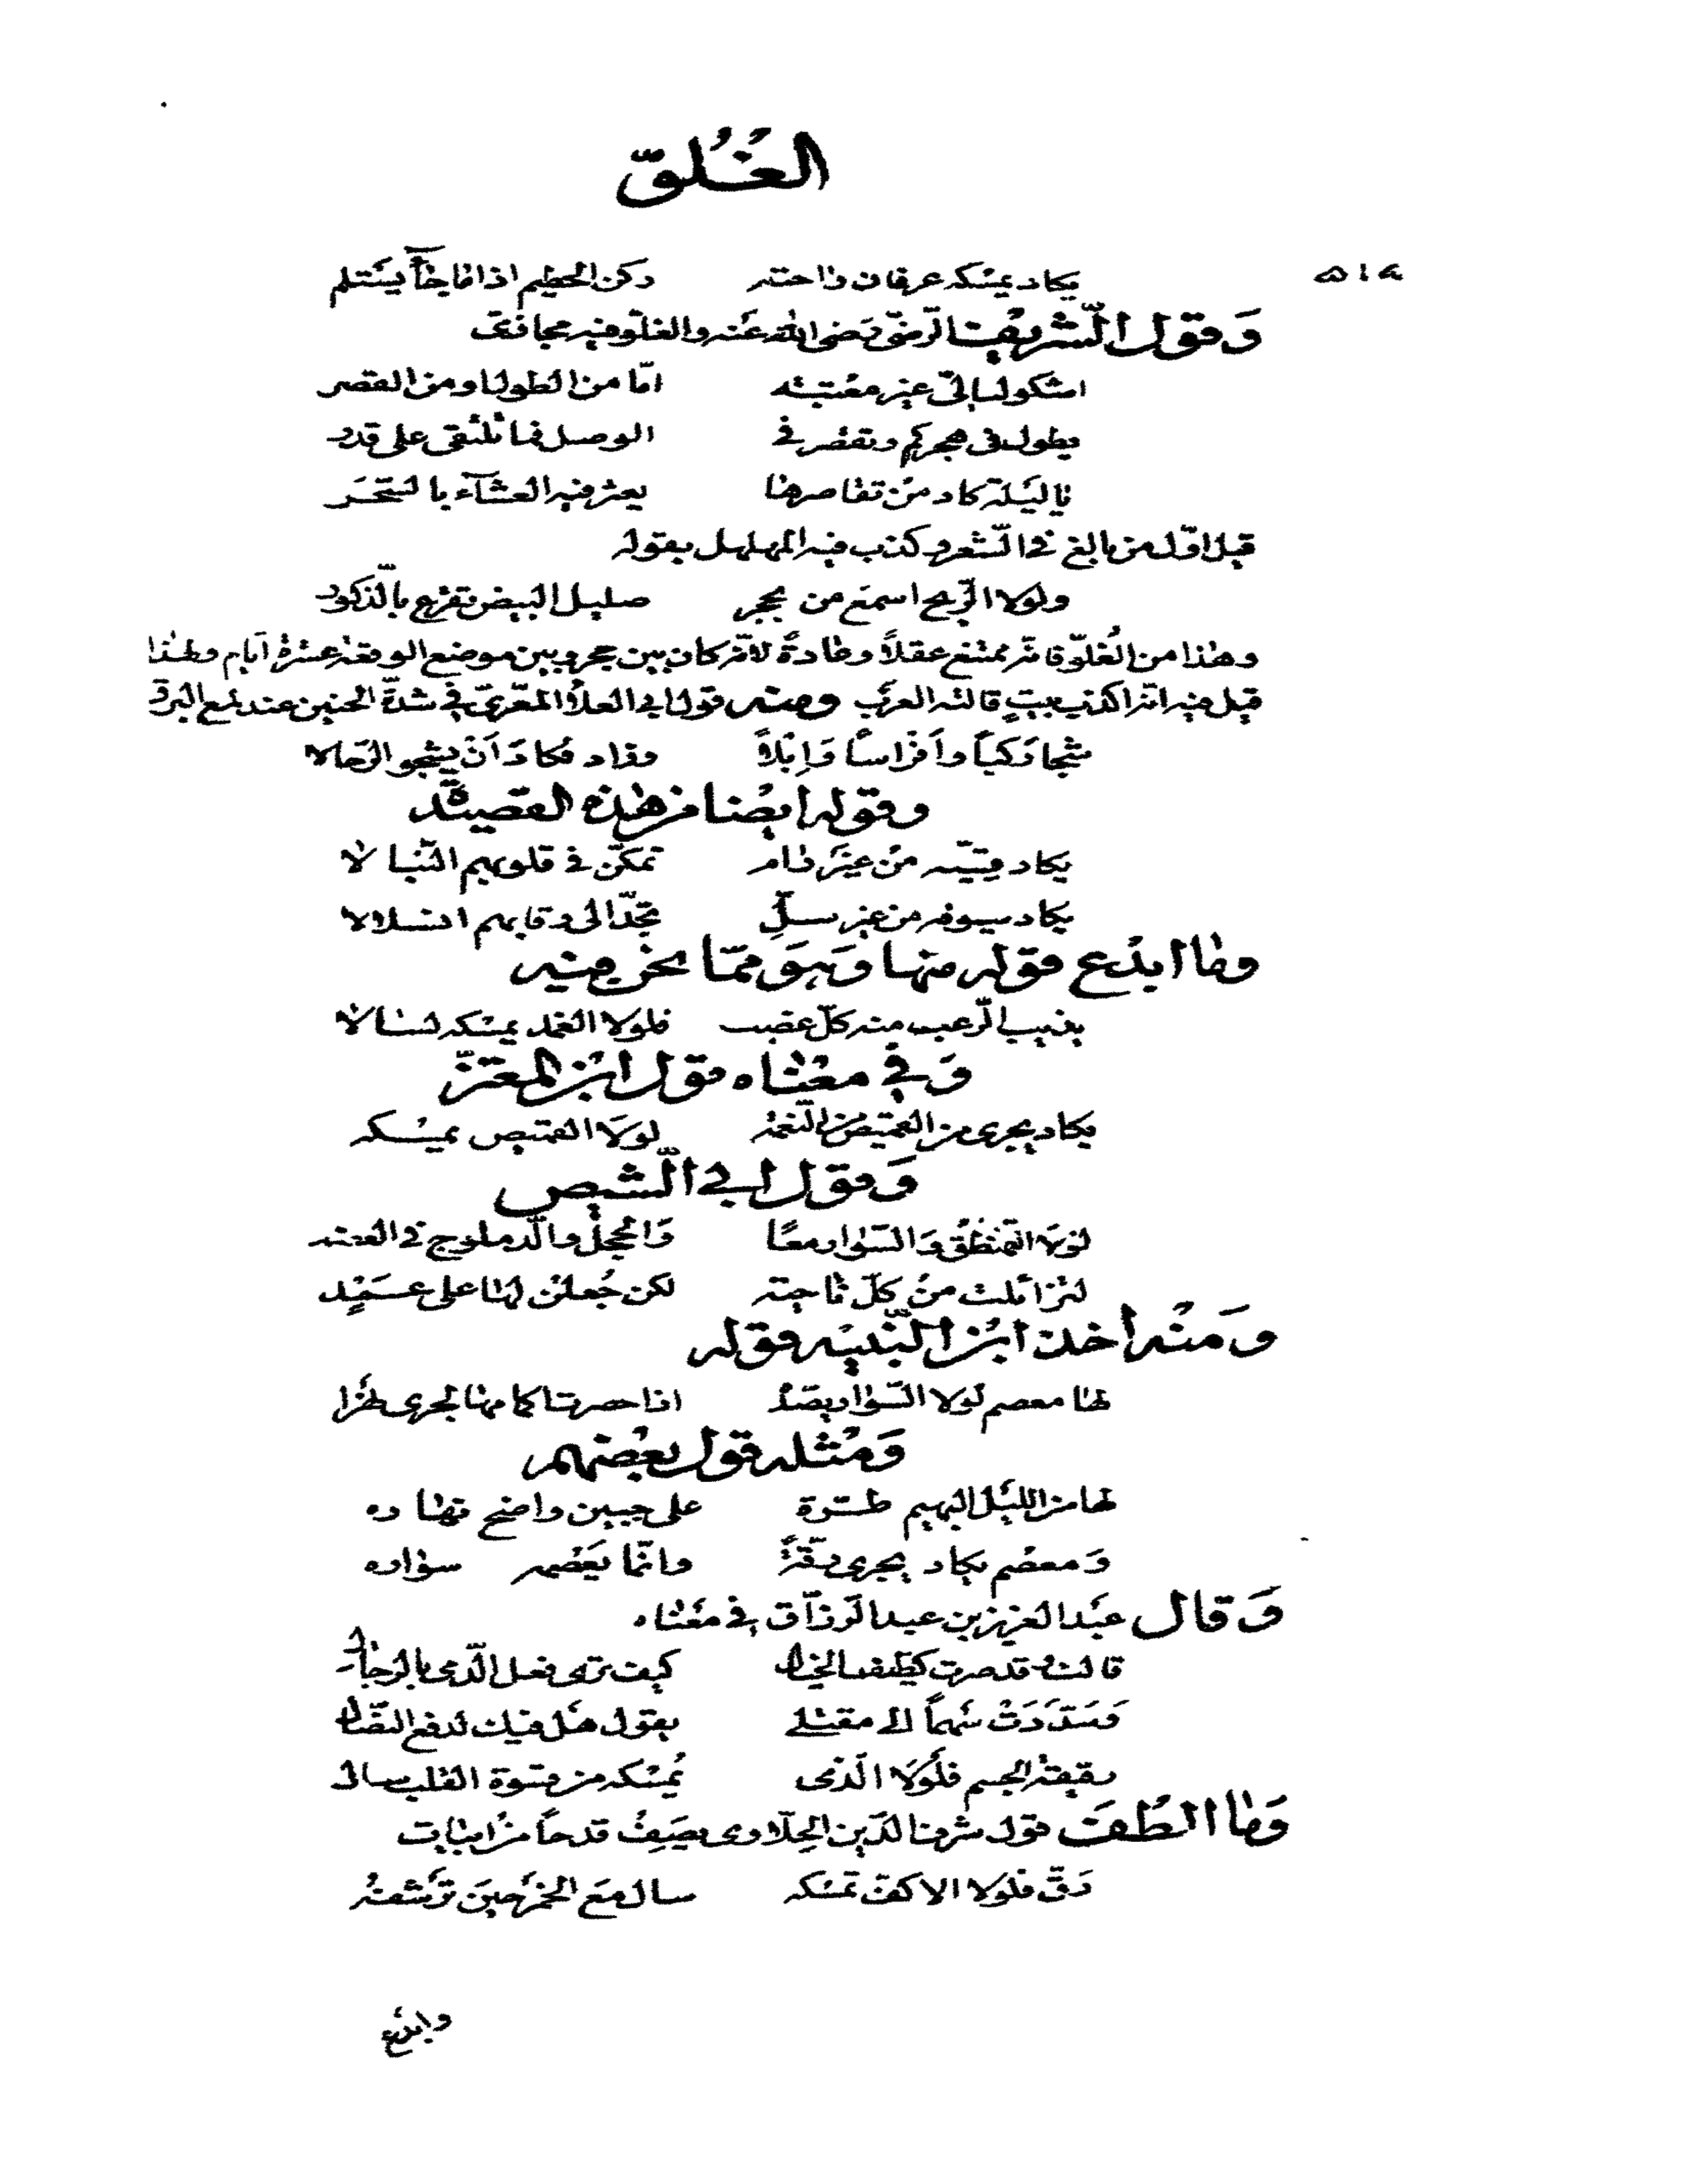 الغُلوّ
٥١٤
يكاد يمسكه عرفان راحته ركن الحطيم اذا ما جآء يستلم
وَقول الشّريف الرّضىّ رَضى الله عَنه والغلوّ فيه مجازىّ
اشكو ليالىّ غير معتبته امّا من الطول او من القصر
يطول فى هجركم وتقصر فى الوصل فما نلتقى على قدر
يا ليلة كاد من تقاصرها يعثر فيه العشآء بالسّحَر
قيل اوّل من بالغ فى الشّعر وكذب فيه المهلهل بقوله
ولولا الرّيح اسمع من بحجر صليل البيض تقرع بالّذكور
وهذا من الغُلوّ فانّه ممتنع عقلاً وعادةً لانّه كان بين حجر وبين موضع الوقعة عشرة ايّام ولهذا
قيل فيه انّه اكذب بيتٍ قالته العرب ومنه قول ابى العلآء المعرّىّ فى شدّة الحنين عند لمع البرق
شجا رَكباً وأفراسًا وَإبلاً وزاد فكادَ اَنْ يشجو الرّحالا
وقوله ايضا من هذه القصيدة
يكاد قسيّه من غير رام تمكّن فى قلوبهم النّبالا
يكاد سيوفه من غير سلٍّ تجدّ الى رقابهم انسلالا
وما ابدع قوله منها وَهوَ ممّا نحن فيه
يذيب الرّعب منه كلّ عضب فلولا الغمد يمسكه لسالا
وَفى معناه قول ابن المعتزّ
يكاد يجرى من القميص من النّعمة لولَا القميص يمسكه
وَقول ابى الشّيص
لولَا التمنطق وَالسّوار معًا وَالحجل والدّملوج فى العضد
لتزايلت من كلّ ناحية لكن جُعلن لها على عَمَدٍ
وَمنه اخذ ابن النّبيه قوله
لها معصم لولا السّوار يصدّه اذا حسرت اكمامها لجرى نهرا
وَمثله قول بعضهم
لها من اللّيل البهيم طرّة على جبين واضح نهاره
وَمعصم يكاد يجرى رقّةً وانّما يَعصمه سواره
وَقال عبَد العزيز بن عبد الرزّاق فى معناه
قالت وقد صرت كطيف الخيال كيف ترى فعل الدّمى بالرّجال
وَسَدّدَتْ سَهماً الى مقتلى يقول هَل فيك لدفع النّضال
رقيقة الجسم فلولَا الّذى يُمسكه من قسوة القلب سال
وَما الطفَ قول شرف الدّين الحلّاوى يصَفِ قدحاً من ابيات
رَقّ فلولا الاكفّ تمسكه سال مَع الخمر حينَ ترشفه
وابدع